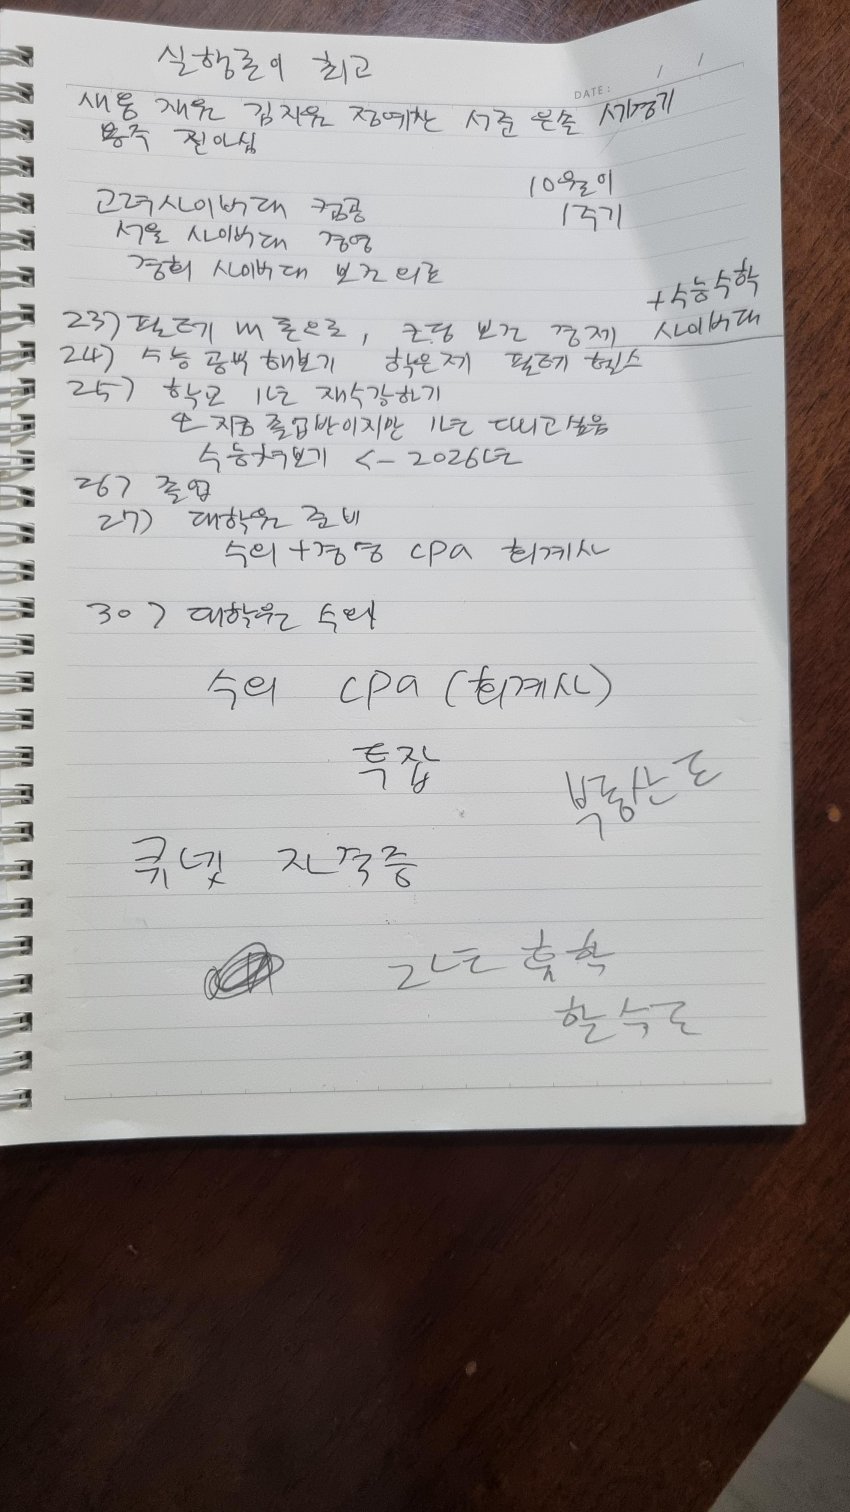 실행률이 최고
DATE: / /
새롬 재원 김지원 정예찬 서준 은솔 세경기
용주 진아심
고려사이버대 컴공
10월이
1주기
서울 사이버대 경영
경희 사이버대 보건의료
+수능수학
23) 필라테 코딩 보건 경제 사이버대
24) 수능 공부 해보기 학은제 헬스
25) 학교 1년 재수강하기
지금 졸업반이지만 1년 더 다니고싶음
수능쳐보기 <- 2026년
26) 졸업
27) 대학원 준비
수의+경영 CPA 회계사
30) 대학원 수의
수의 CPA (회계사)
특집
큐넷 자격증
2년 휴학
할수도